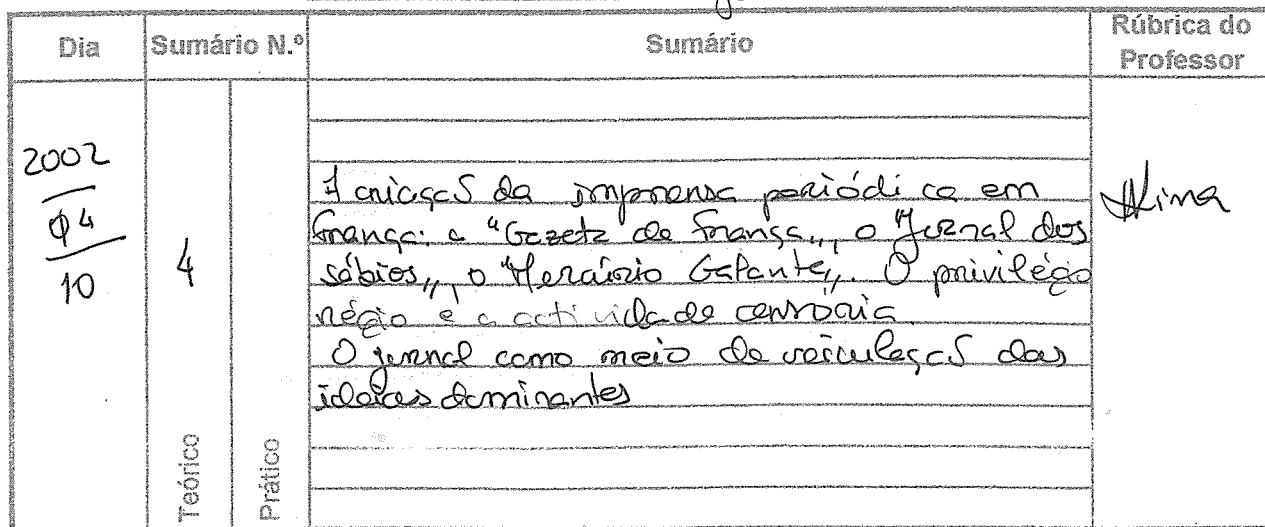 Dia Sumário N.º Sumário Rúbrica do Professor
2002
04
10
4
A criação da imprensa periódica em
França: a "Gazeta de França", o "Jornal dos
sábios", o "Mercúrio Galante". O privilégio
régio e a actividade censória.
O jornal como meio de veiculação das
ideias dominantes
Teórico
Prático